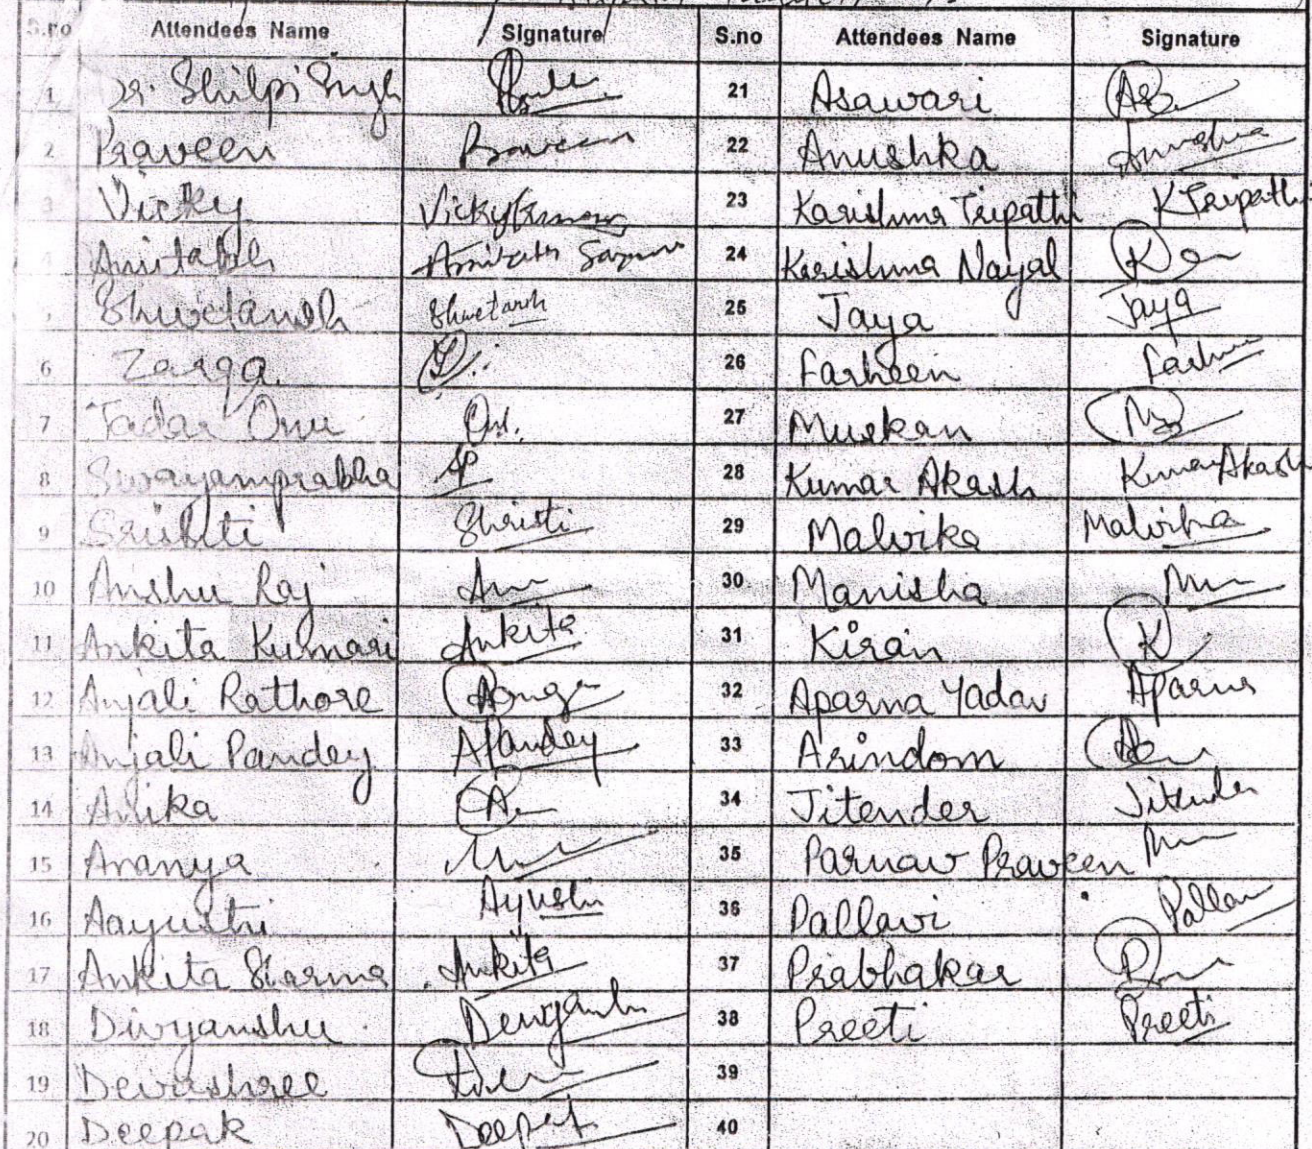 S.no Attendees Name Signature S.no Attendees Name Signature
1 Dr. Shilpi Singh 21 Asawari
2 Praveen Praveen 22 Anushka Anushka
3 Vicky Vicky 23 Karishma Tripathi K Tripathi
4 Amitabh Amitabh 24 Karishma Nayal K
5 Shwetansh Shwetansh 25 Jaya Jaya
6 Zarqa 26 Farheen Farheen
7 Tadar Onu Onu. 27 Muskan
8 Swayamprabha SP 28 Kumar Akash Kumar Akash
9 Srishti Shristi 29 Malvika Malvika
10 Anshu Raj 30 Manisha
11 Ankita Kumari Ankita 31 Kiran K
12 Anjali Rathore 32 Aparna Yadav Aparna
13 Anjali Pandey APandey 33 Arindom
14 34 Jitender Jitender
15 Ananya 35 Parnav Praveen
16 Aayushi Ayushi 36 Pallavi Pallavi
17 Ankita Sharma Ankita 37 Prabhakar
18 Divyanshu 38 Preeti Preeti
19 Devashree 39
20 Deepak Deepak 40